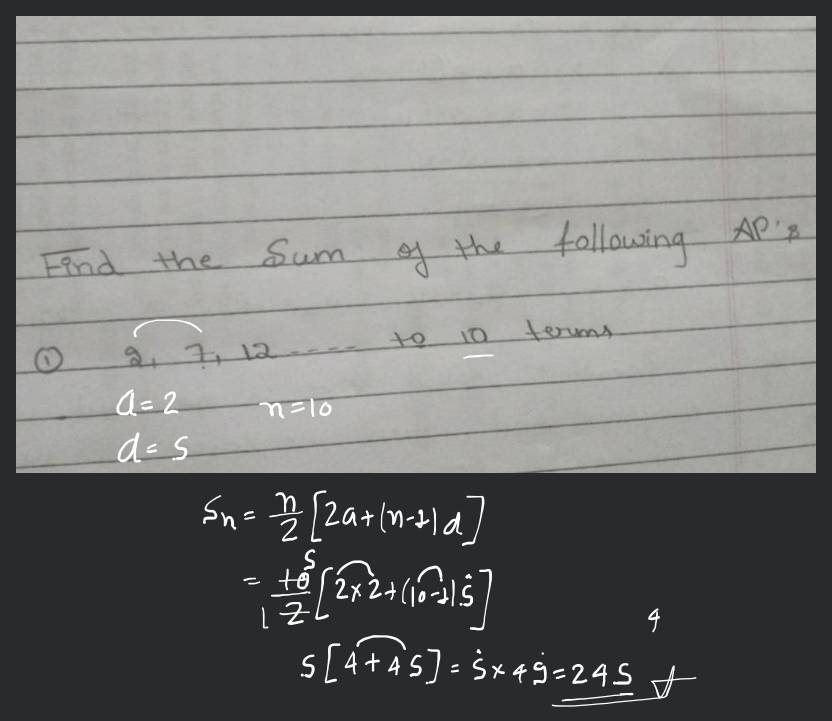 Find the Sum of the following AP's
① 2, 7, 12 ---- to 10 terms
a = 2 n = 10
d = 5
Sn = n/2 [2a+(n-1)d]
= 10/2 [2×2+(10-1)5]
5[4+45] = 5×49 = 245